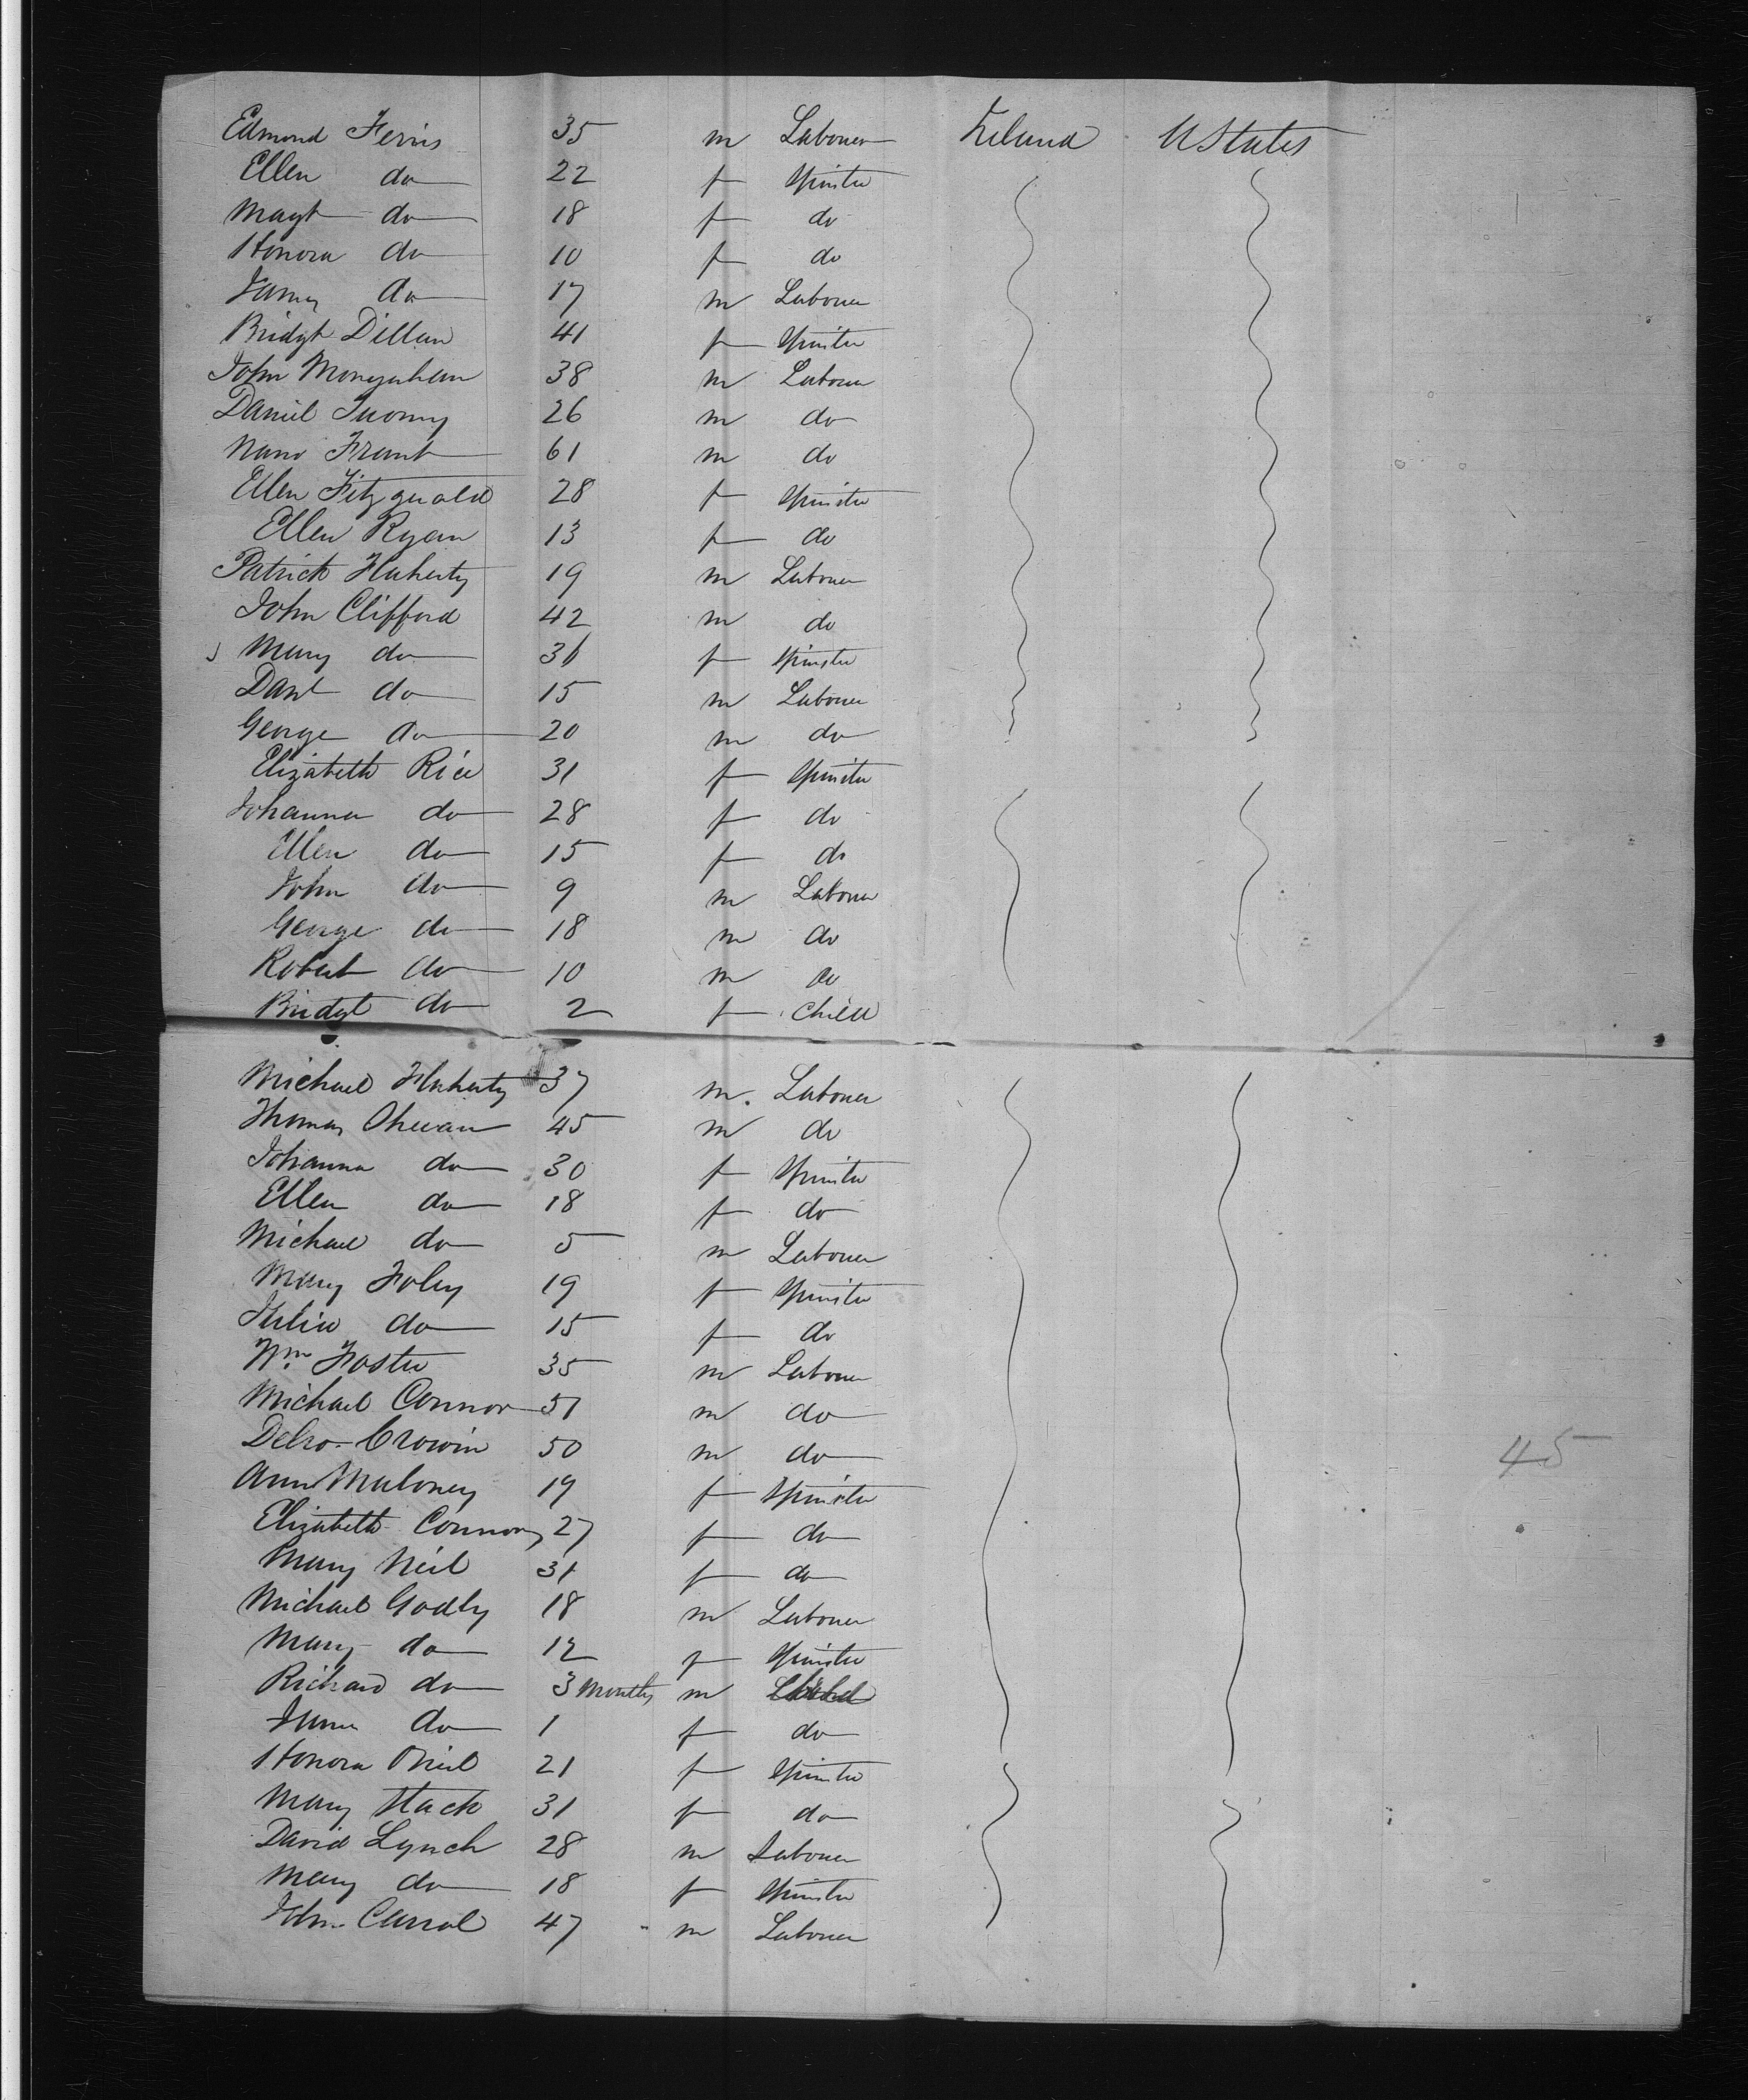 Edmond Ferris 35 m Labourer Ireland U States
Ellen do 22 f Spinster
Magt do 18 f do
Honora do 10 f do
James do 17 m Labourer
Bridgt Dillan 41 f Spinster
John Mongnhan 38 m Labourer
Daniel Tuomy 26 m do
Nano Frank 61 m do
Ellen Fitzgerald 28 f Spinster
Ellen Ryan 13 f do
Patrick Flaherty 19 m Labourer
John Clifford 42 m do
Mary do 31 f Spinster
Danl do 15 m Labourer
George do 20 m do
Elizabeth Rice 31 f Spinster
Johanna do 28 f do
Ellen do 15 f do
John do 9 m Labourer
George do 18 m do
Robert do 10 m do
Bridgt do 2 f Child
Michael Flaherty 37 m. Labourer
Thomas 45 m do
Johanna do 30 f Spinster
Ellen do 18 f do
Michael do 5 m Labourer
Mary Foley 19 f Spinster
Julia do 15 f do
Wm. Foster 35 m Labourer
Michael Connor 51 m do
Crowin 50 m do 45
Ann Maloney 19 f Spinster
Elizabeth Connory 27 f do
Mary Neil 31 f do
Michael Godly 18 m Labourer
Mary do 12 f Spinster
Richard do 3 Months m Child
do 1 f do
Honora Oneil 21 f Spinster
Mary Stack 31 f do
David Lynch 28 m Labourer
Mary do 18 f Spinster
John Carrol 47 m Labourer